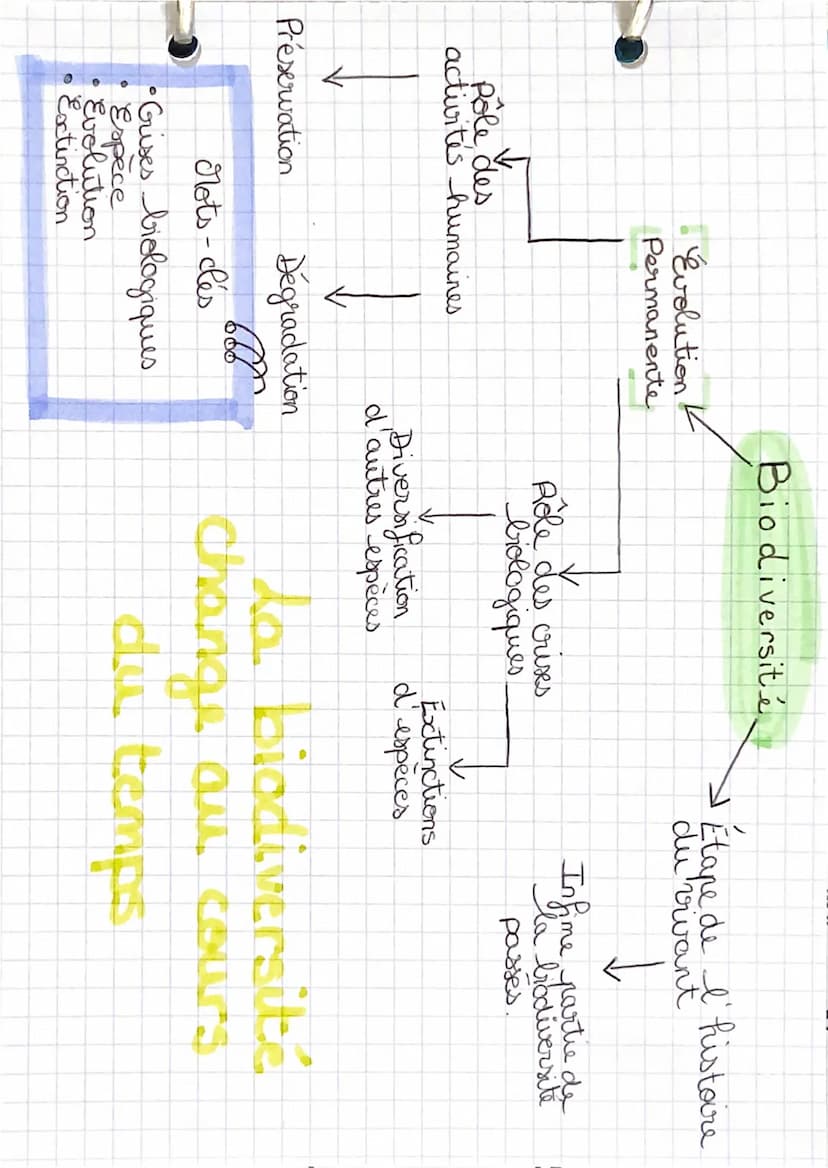 Biodiversité
Évolution
Permanente
Étape de l'histoire
du vivant
Rôle des
activités humaines
Rôle des crises
biologiques
Infime partie de
la biodiversité
passés.
Préservation
Dégradation
Diversification
d'autres espèces
Extinctions
d'espèces
Mots-clés
• Crises biologiques
• Espèce
• Évolution
• Extinction
La biodiversité
change au cours
du temps